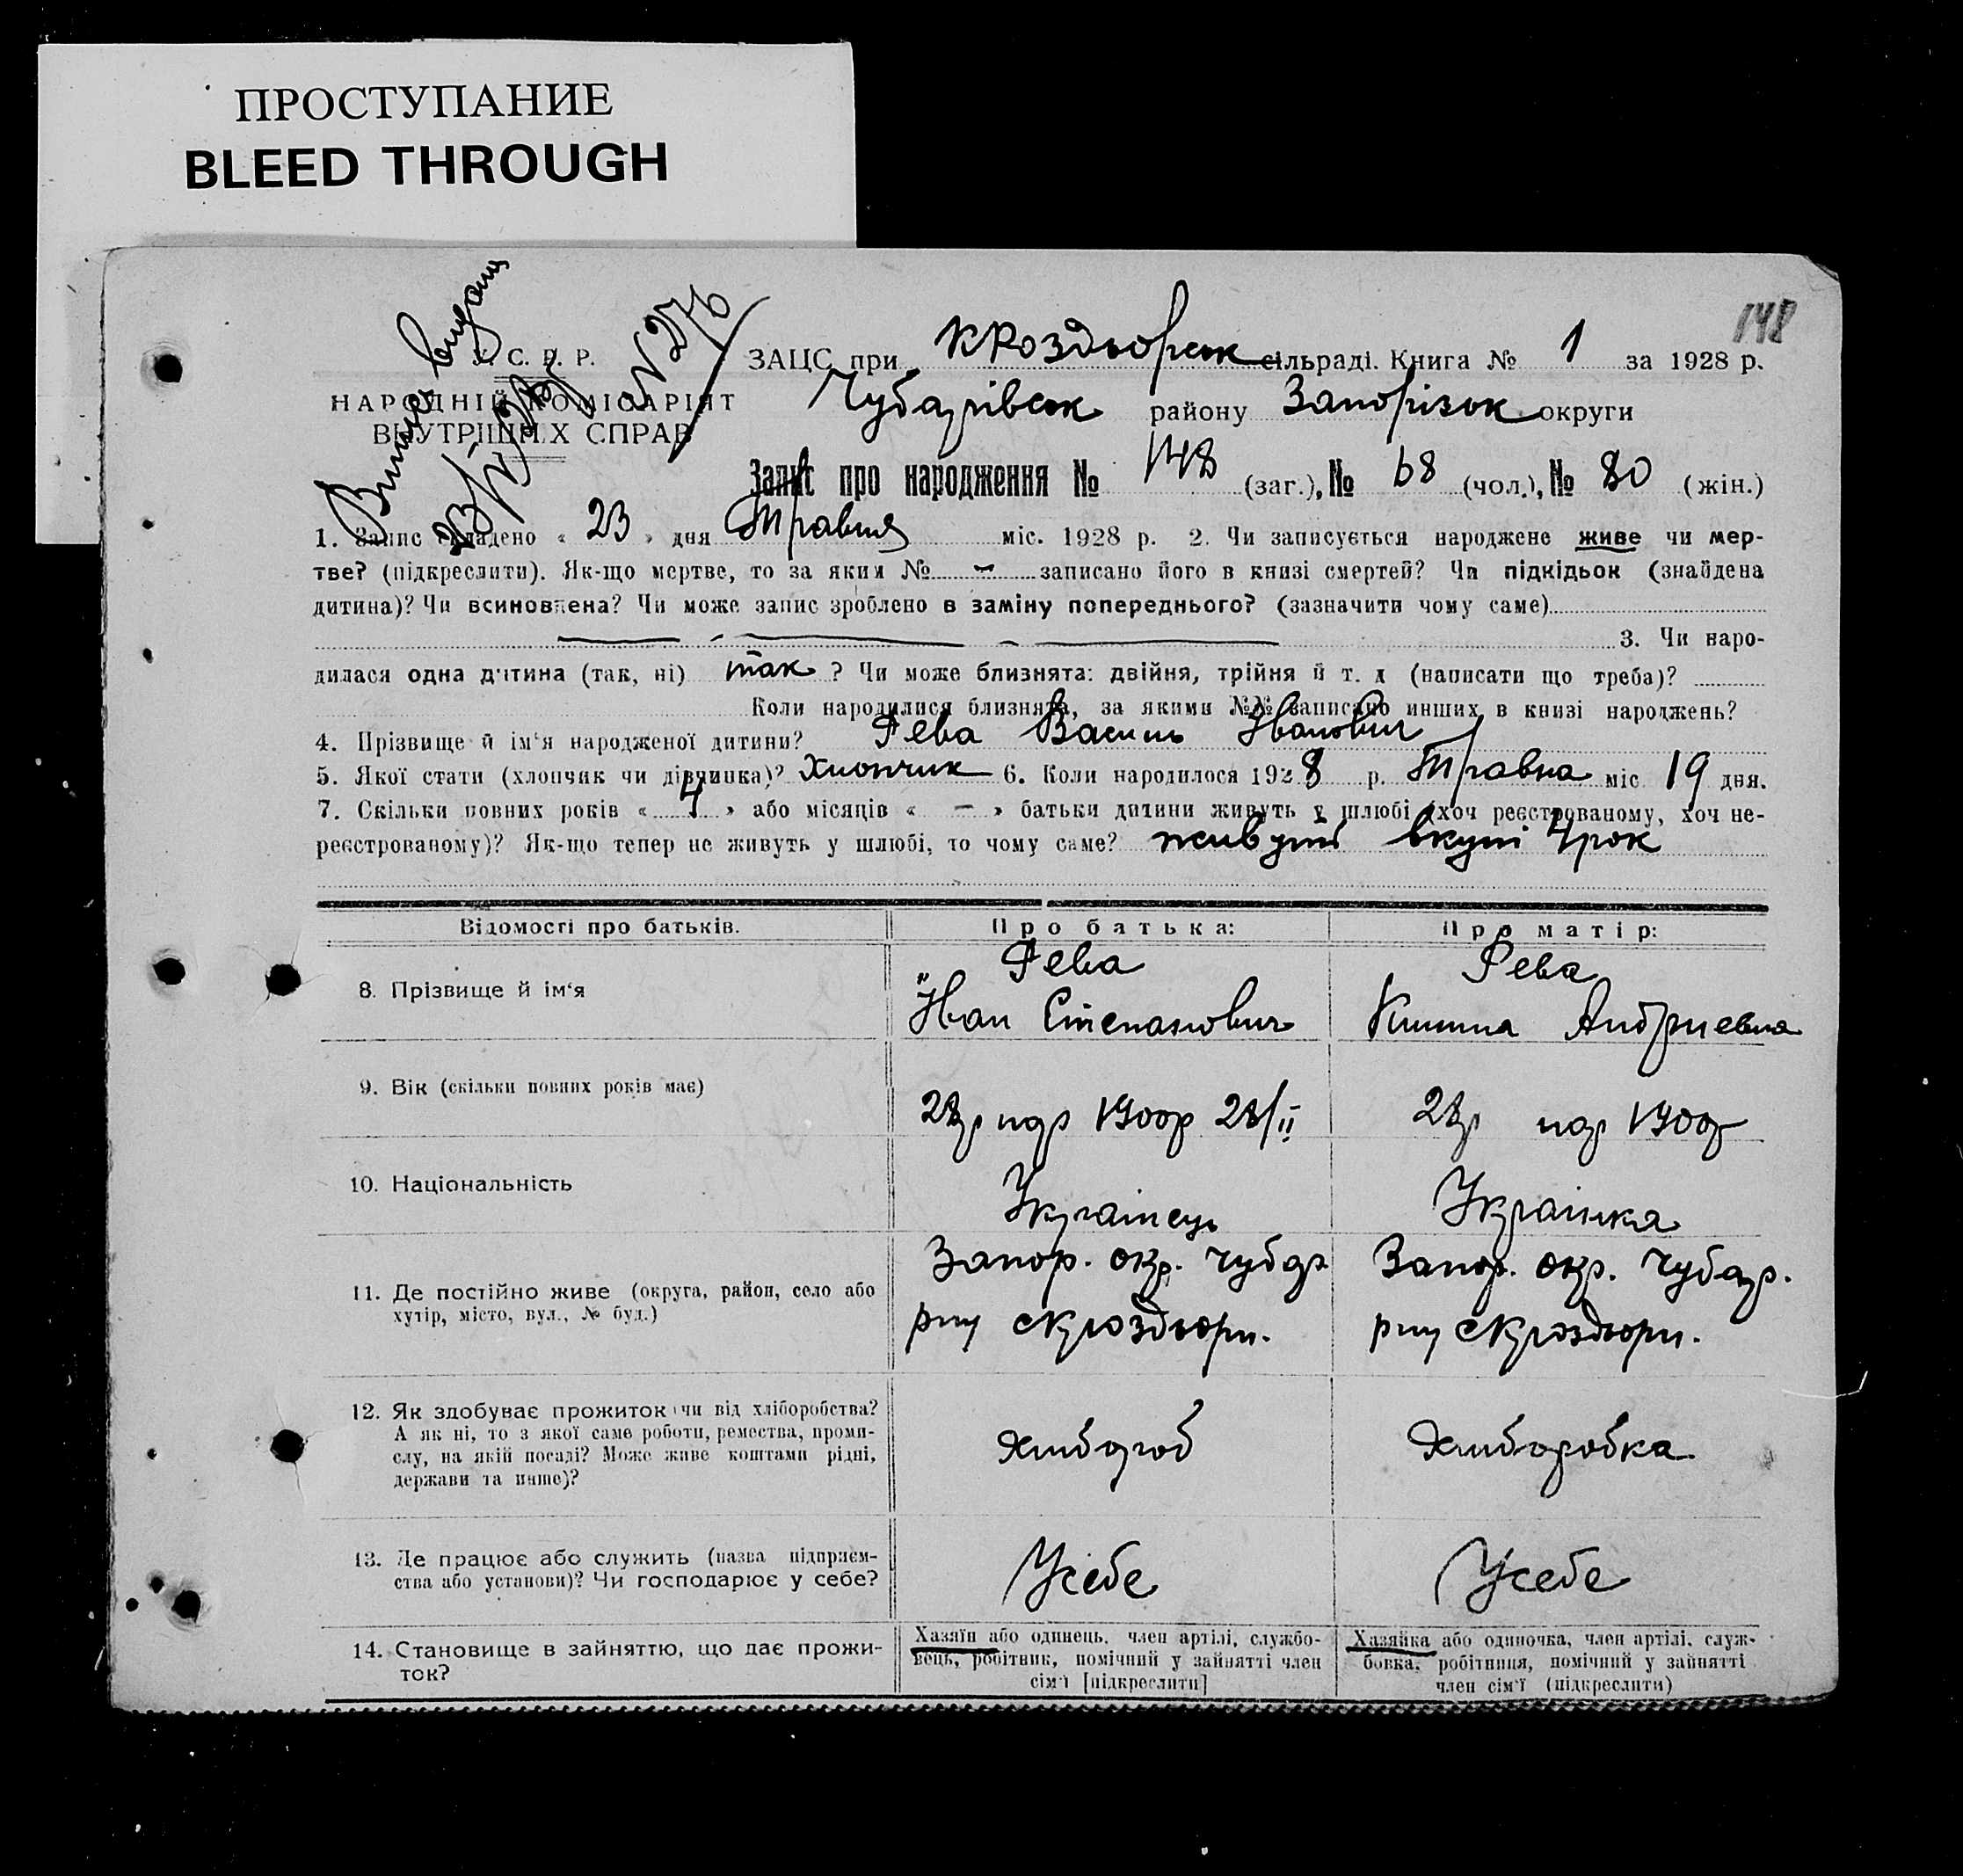 ПРОСТУПАНИЕ
BLEED THROUGH
148
Випис видано
23/ №276
У. С. Р. Р.
НАРОДНІЙ КОМІСАРІЯТ
ВНУТРІШНІХ СПРАВ
ЗАЦС при КРоздьорськ сільраді. Книга № 1 за 1928 р.
Чубарівськ району Запорізьк округи
Запис про народження № 148 (заг.), № 68 (чол.), № 80 (жін.)
1. Запис складено « 23 » дня Травня міс. 1928 р. 2. Чи записується народжене живе чи мер-
тве? (підкреслити). Як-що мертве, то за яким № — записано його в книзі смертей? Чи підкідьок (знайдена
дитина)? Чи всиновлена? Чи може запис зроблено в заміну попереднього? (зазначити чому саме)
3. Чи наро-
дилася одна дитина (так, ні) так ? Чи може близнята: двійня, трійня й т. д (написати що треба)?
Коли народилися близнята, за якими №№ записано инших в книзі народжень?
4. Прізвище й ім'я народженої дитини? Рева Василь Іванович
5. Якої стати (хлопчик чи дівчинка)? Хлопчик 6. Коли народилося 1928 р. Травня міс 19 дня.
7. Скільки повних років « 4 » або місяців « — » батьки дитини живуть у шлюбі (хоч реєстрованому, хоч не-
реєстрованому)? Як-що тепер не живуть у шлюбі, то чому саме? живуть вкупі 4 рок
Відомості про батьків.
Про батька:
Про матір:
8. Прізвище й ім'я
Рева
Іван Степанович
Рева
Килина Андриевна
9. Вік (скільки повних років має)
28р ндр 1900р 28/II
28р ндр 1900р
10. Національність
Українець
Українка
11. Де постійно живе (округа, район, село або
хутір, місто, вул., № буд.)
Запор. окр. Чубар
рну с Кроздьори.
Запор. окр. Чубар.
рну с Кроздьори.
12. Як здобуває прожиток чи від хліборобства?
А як ні, то з якої саме роботи, ремества, проми-
слу, на якій посаді? Може живе коштами рідні,
держави та инше)?
хлибороб
Хлиборобка
13. Де працює або служить (назва підприєм-
ства або установи)? Чи господарює у себе?
Усебе
Усебе
14. Становище в зайняттю, що дає прожи-
ток?
Хазяїн або одинець, член артілі, службо-
вець, робітник, помічний у зайнятті член
сім'ї [підкреслити]
Хазяйка або одиночка, член артілі, служ-
бовка, робітниця, помічний у зайнятті
член сім'ї (підкреслити)